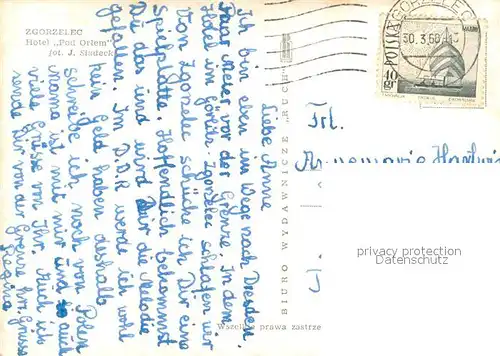 ZGORZELEC
Hotel „Pod Orłem"
fot. J. Siudecki
BIURO WYDAWNICZE „RUCH"
Wszelkie prawa zastrze
ZGORZELEC
30. 3. 60
POLSKA
10 gr
Frl.
Annemarie
privacy protection
Datenschutz
Liebe Anne
Ich bin eben im Wege nach Dresden.
Paar meter vor der Grenze. In dem
Hotel im Görlitz-Zgorzelec schlafen wir
Von Zgorzelec schücke ich Dir eine
Spielplatte. Hoffendlich bekommst
Du das und wird Dir die Melodie
gefallen. Im D.D.R werde ich wohl
kein Geld haben deshalb
schreibe ich noch von Polen
mama ist mit mir und auch
viele Grüsse von Ihr. Auch ich
sende Dir von der Grenze hrz. Grüsse
Regina